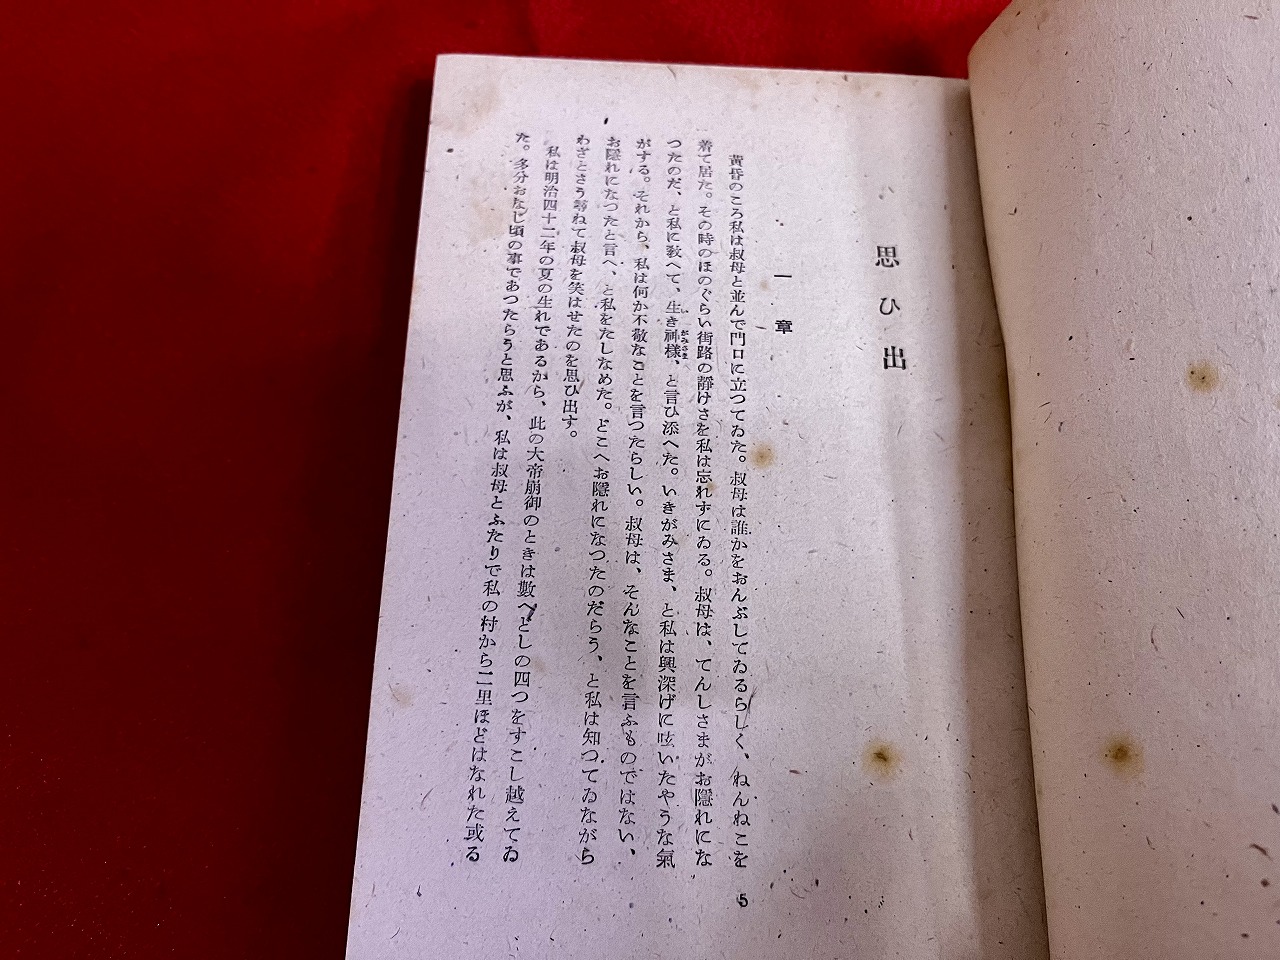 思ひ出
一章
黄昏のころ私は叔母と並んで門口に立つてゐた。叔母は誰かをおんぶしてゐるらしく、ねんねこを
着て居た。その時のほのぐらい街路の靜けさを私は忘れずにゐる。叔母は、てんしさまがお隱れにな
つたのだ、と私に敎へて、生き神樣、と言ひ添へた。いきがみさま、と私は興深げに呟いたやうな氣
い がみさま
がする。それから、私は何か不敬なことを言つたらしい。叔母は、そんなことを言ふものではない、
お隱れになつたと言へ、と私をたしなめた。どこへお隱れになつたのだらう、と私は知つてゐながら
わざとさう尋ねて叔母を笑はせたのを思ひ出す。
私は明治四十二年の夏の生れであるから、此の大帝崩御のときは數へどしの四つをすこし越えてゐ
た。多分おなじ頃の事であつたらうと思ふが、私は叔母とふたりで私の村から二里ほどはなれた或る
5